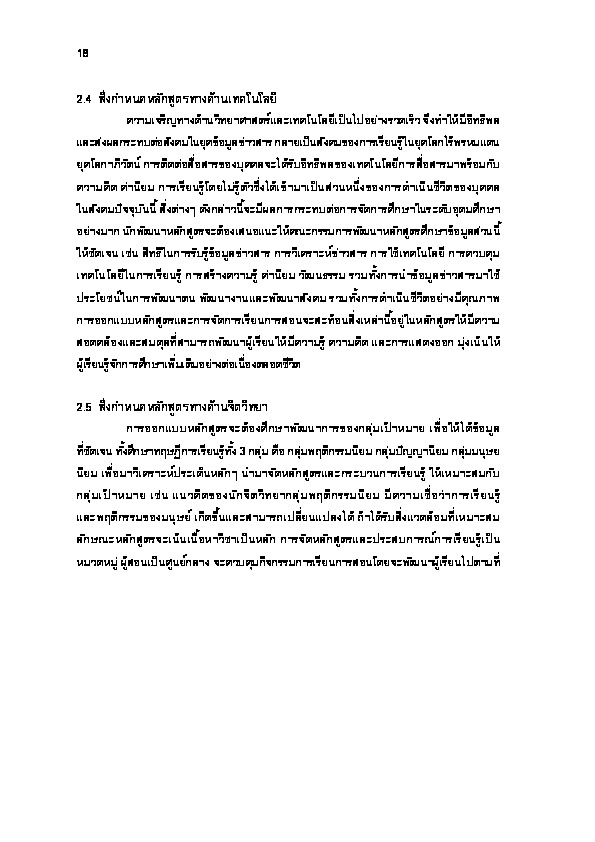 18
2.4 สิ่งกำหนดหลักสูตรทางด้านเทคโนโลยี
ความเจริญทางด้านวิทยาศาสตร์และเทคโนโลยีเป็นไปอย่างรวดเร็ว จึงทำให้มีอิทธิพล
และส่งผลกระทบต่อสังคมในยุคข้อมูลข่าวสาร กลายเป็นสังคมของการเรียนรู้ในยุคโลกไร้พรหมแดน
ยุคโลกาภิวัตน์ การติดต่อสื่อสารของบุคคลจะได้รับอิทธิพลของเทคโนโลยีการสื่อสารมาพร้อมกับ
ความคิด ค่านิยม การเรียนรู้โดยไม่รู้ตัวซึ่งได้เข้ามาเป็นส่วนหนึ่งของการดำเนินชีวิตของบุคคล
ในสังคมปัจจุบันนี้ สิ่งต่างๆ ดังกล่าวนี้จะมีผลการกระทบต่อการจัดการศึกษาในระดับอุดมศึกษา
อย่างมาก นักพัฒนาหลักสูตรจะต้องเสนอแนะให้คณะกรรมการพัฒนาหลักสูตรศึกษาข้อมูลส่วนนี้
ให้ชัดเจน เช่น สิทธิในการรับรู้ข้อมูลข่าวสาร การวิเคราะห์ข่าวสาร การใช้เทคโนโลยี การควบคุม
เทคโนโลยีในการเรียนรู้ การสร้างความรู้ ค่านิยม วัฒนธรรม รวมทั้งการนำข้อมูลข่าวสารมาใช้
ประโยชน์ในการพัฒนาตน พัฒนางานและพัฒนาสังคม รวมทั้งการดำเนินชีวิตอย่างมีคุณภาพ
การออกแบบหลักสูตรและการจัดการเรียนการสอนจะสะท้อนสิ่งเหล่านี้อยู่ในหลักสูตรให้มีความ
สอดคล้องและสมดุลที่สามารถพัฒนาผู้เรียนให้มีความรู้ ความคิด และการแสดงออก มุ่งเน้นให้
ผู้เรียนรู้จักการศึกษาเพิ่มเติมอย่างต่อเนื่องตลอดชีวิต
2.5 สิ่งกำหนดหลักสูตรทางด้านจิตวิทยา
การออกแบบหลักสูตรจะต้องศึกษาพัฒนาการของกลุ่มเป้าหมาย เพื่อให้ได้ข้อมูล
ที่ชัดเจน ทั้งศึกษาทฤษฎีการเรียนรู้ทั้ง 3 กลุ่ม คือ กลุ่มพฤติกรรมนิยม กลุ่มปัญญานิยม กลุ่มมนุษย
นิยม เพื่อมาวิเคราะห์ประเด็นหลักๆ นำมาจัดหลักสูตรและกระบวนการเรียนรู้ ให้เหมาะสมกับ
กลุ่มเป้าหมาย เช่น แนวคิดของนักจิตวิทยากลุ่มพฤติกรรมนิยม มีความเชื่อว่าการเรียนรู้
และพฤติกรรมของมนุษย์ เกิดขึ้นและสามารถเปลี่ยนแปลงได้ ถ้าได้รับสิ่งแวดล้อมที่เหมาะสม
ลักษณะหลักสูตรจะเน้นเนื้อหาวิชาเป็นหลัก การจัดหลักสูตรและประสบการณ์การเรียนรู้เป็น
หมวดหมู่ ผู้สอนเป็นศูนย์กลาง จะควบคุมกิจกรรมการเรียนการสอนโดยจะพัฒนาผู้เรียนไปตามที่